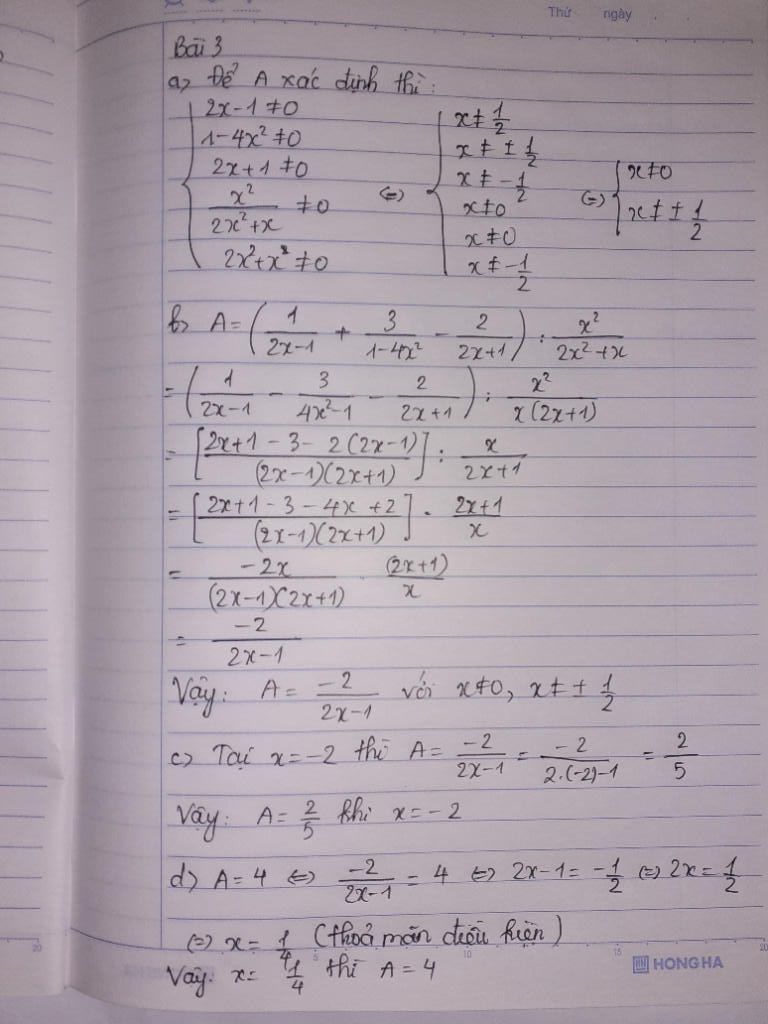 Thứ ngày
Bài 3
a) Để A xác định thì:
2x-1 ≠ 0
1-4x² ≠ 0
2x+1 ≠ 0
x²/(2x²+x) ≠ 0
2x²+x² ≠ 0
⇔
x ≠ 1/2
x ≠ ± 1/2
x ≠ -1/2
x ≠ 0
x ≠ 0
x ≠ -1/2
⇔
x ≠ 0
x ≠ ± 1/2
b) A = (1/(2x-1) + 3/(1-4x²) - 2/(2x+1)) : x²/(2x²+x)
= (1/(2x-1) - 3/(4x²-1) - 2/(2x+1)) : x²/(x(2x+1))
= [(2x+1-3-2(2x-1))/((2x-1)(2x+1))] : x/(2x+1)
= [(2x+1-3-4x+2)/((2x-1)(2x+1))] · (2x+1)/x
= -2x/((2x-1)(2x+1)) (2x+1)/x
= -2/(2x-1)
Vậy: A = -2/(2x-1) với x ≠ 0, x ≠ ± 1/2
c) Tại x = -2 thì A = -2/(2x-1) = -2/(2.(-2)-1) = 2/5
Vậy: A = 2/5 khi x = -2
d) A = 4 ⇔ -2/(2x-1) = 4 ⇔ 2x-1 = -1/2 ⇔ 2x = 1/2
⇔ x = 1/4 (thoả mãn điều kiện)
Vậy: x = 1/4 thì A = 4
20 5 10 15 20
HONG HA